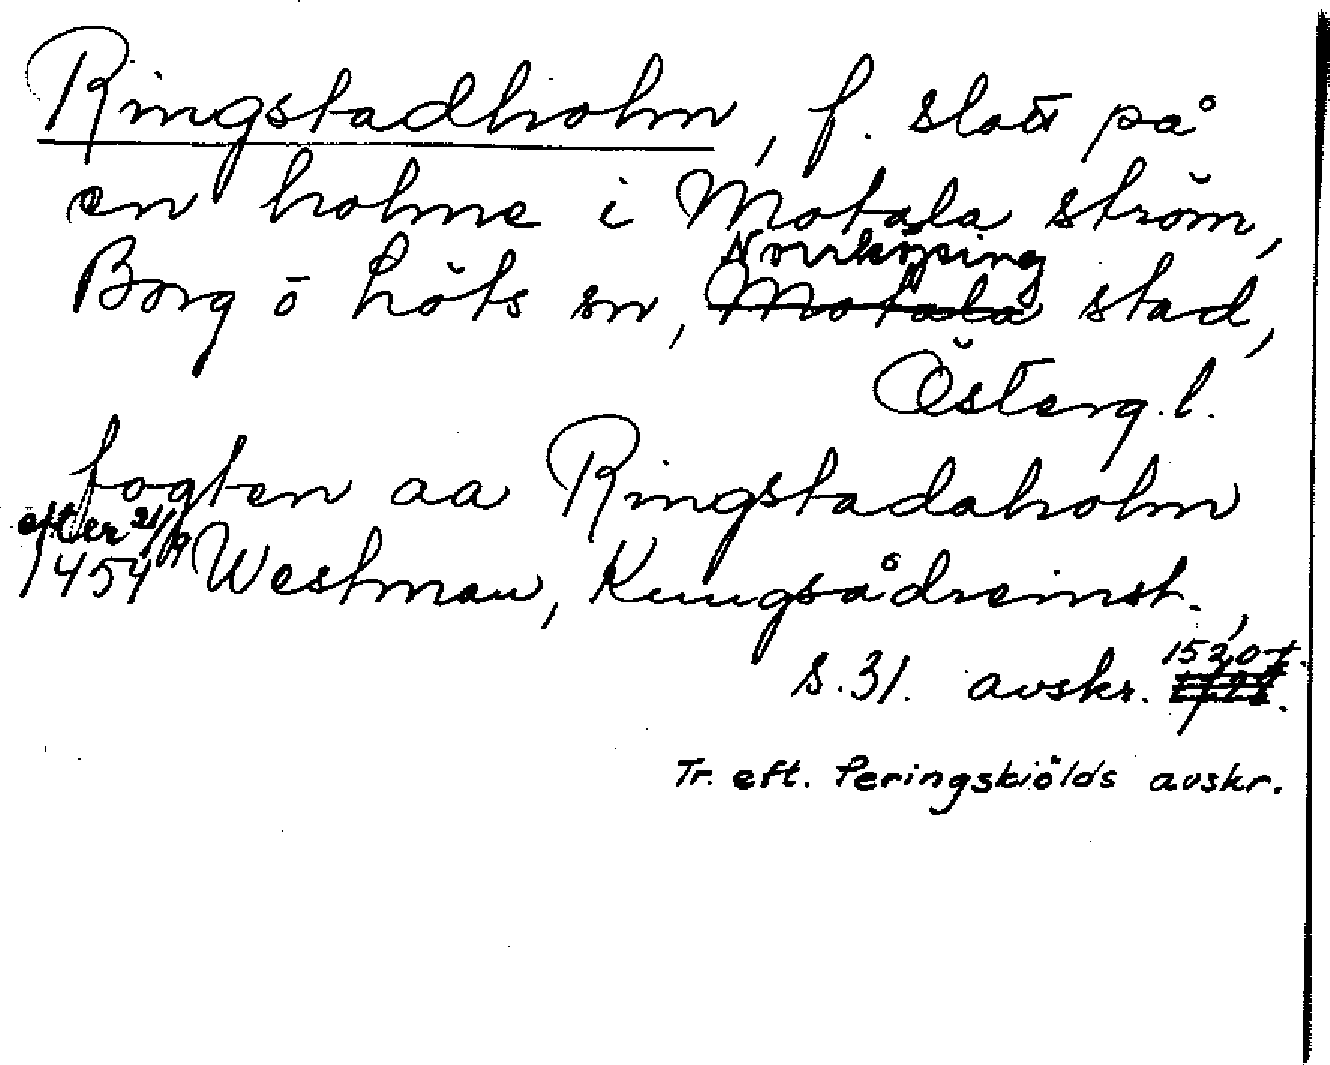 Ringstadholm, f. slott på
en holme i Motala ström,
Norrköping
Borg o Löts sn, Motala stad,
Österg.l.
fogten aa Ringstadaholm
efter 21/9
1454 Westman, Kungsådreinst.,
s.31. avskr. 1520t.
Tr. eft. Peringskiölds avskr.